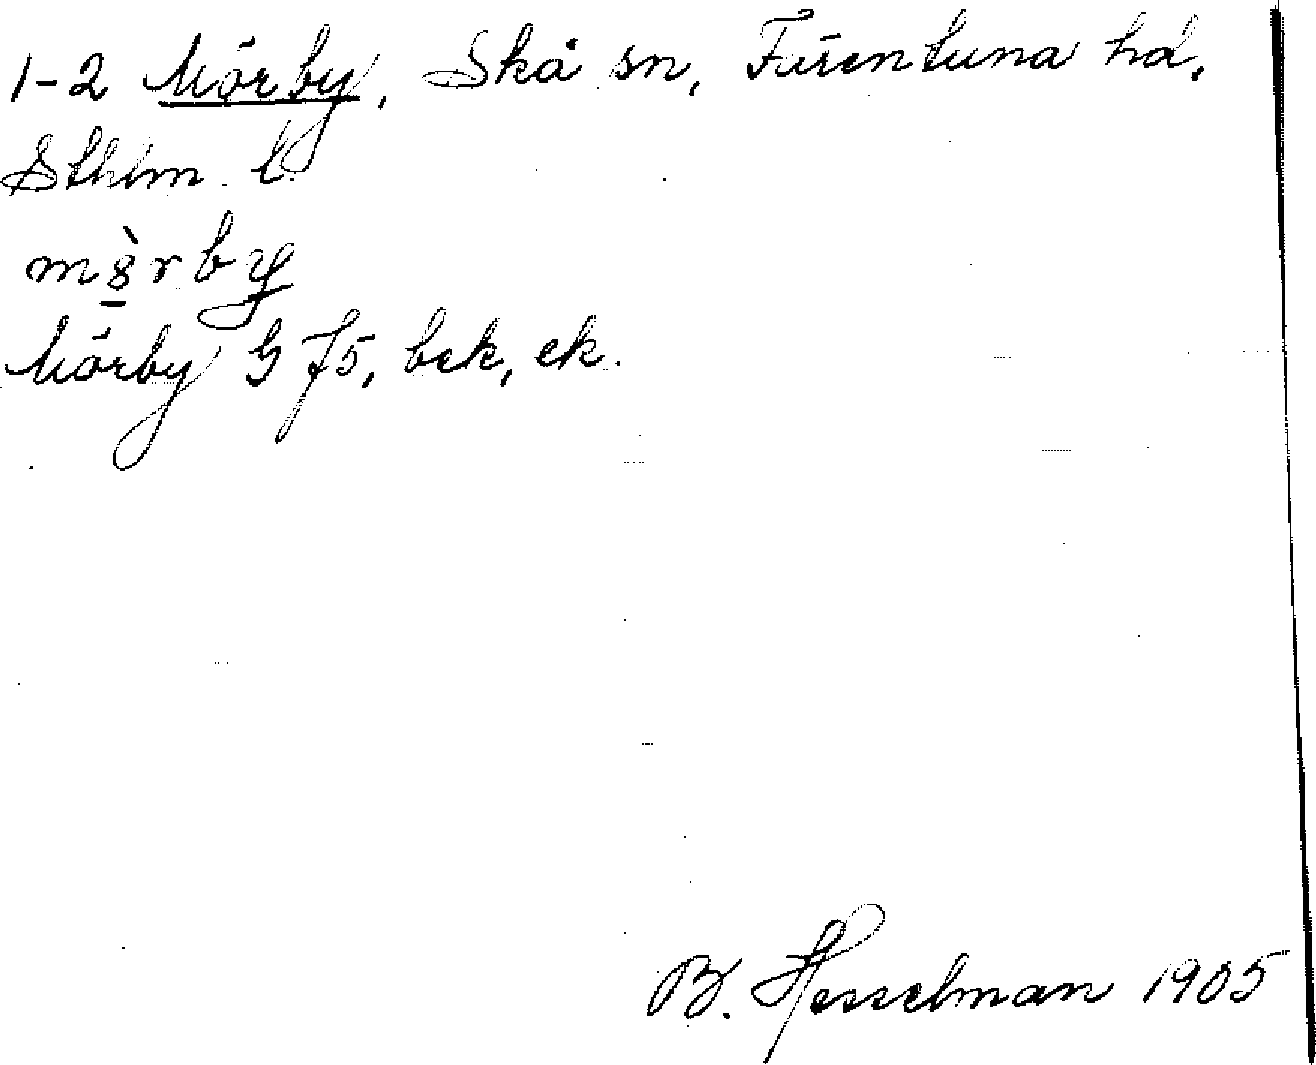 1-2 Mörby, Skå sn, Färentuna hd,
Sthlm. l.
mö̀rby
Mörby G J5, bek, ek.
B. Hesselman 1905